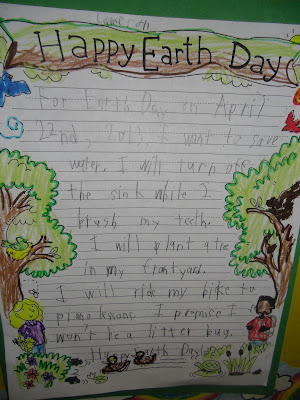 Happy Earth Day
For Earth Day on April
22nd, 2011, I want to save
water. I will turn off
the sink while I
brush my teeth.
I will plant a tree
in my frontyard.
I will ride my bike to
piano lessons. I promise I
won't be a litter bug.
Happy Earth Day!